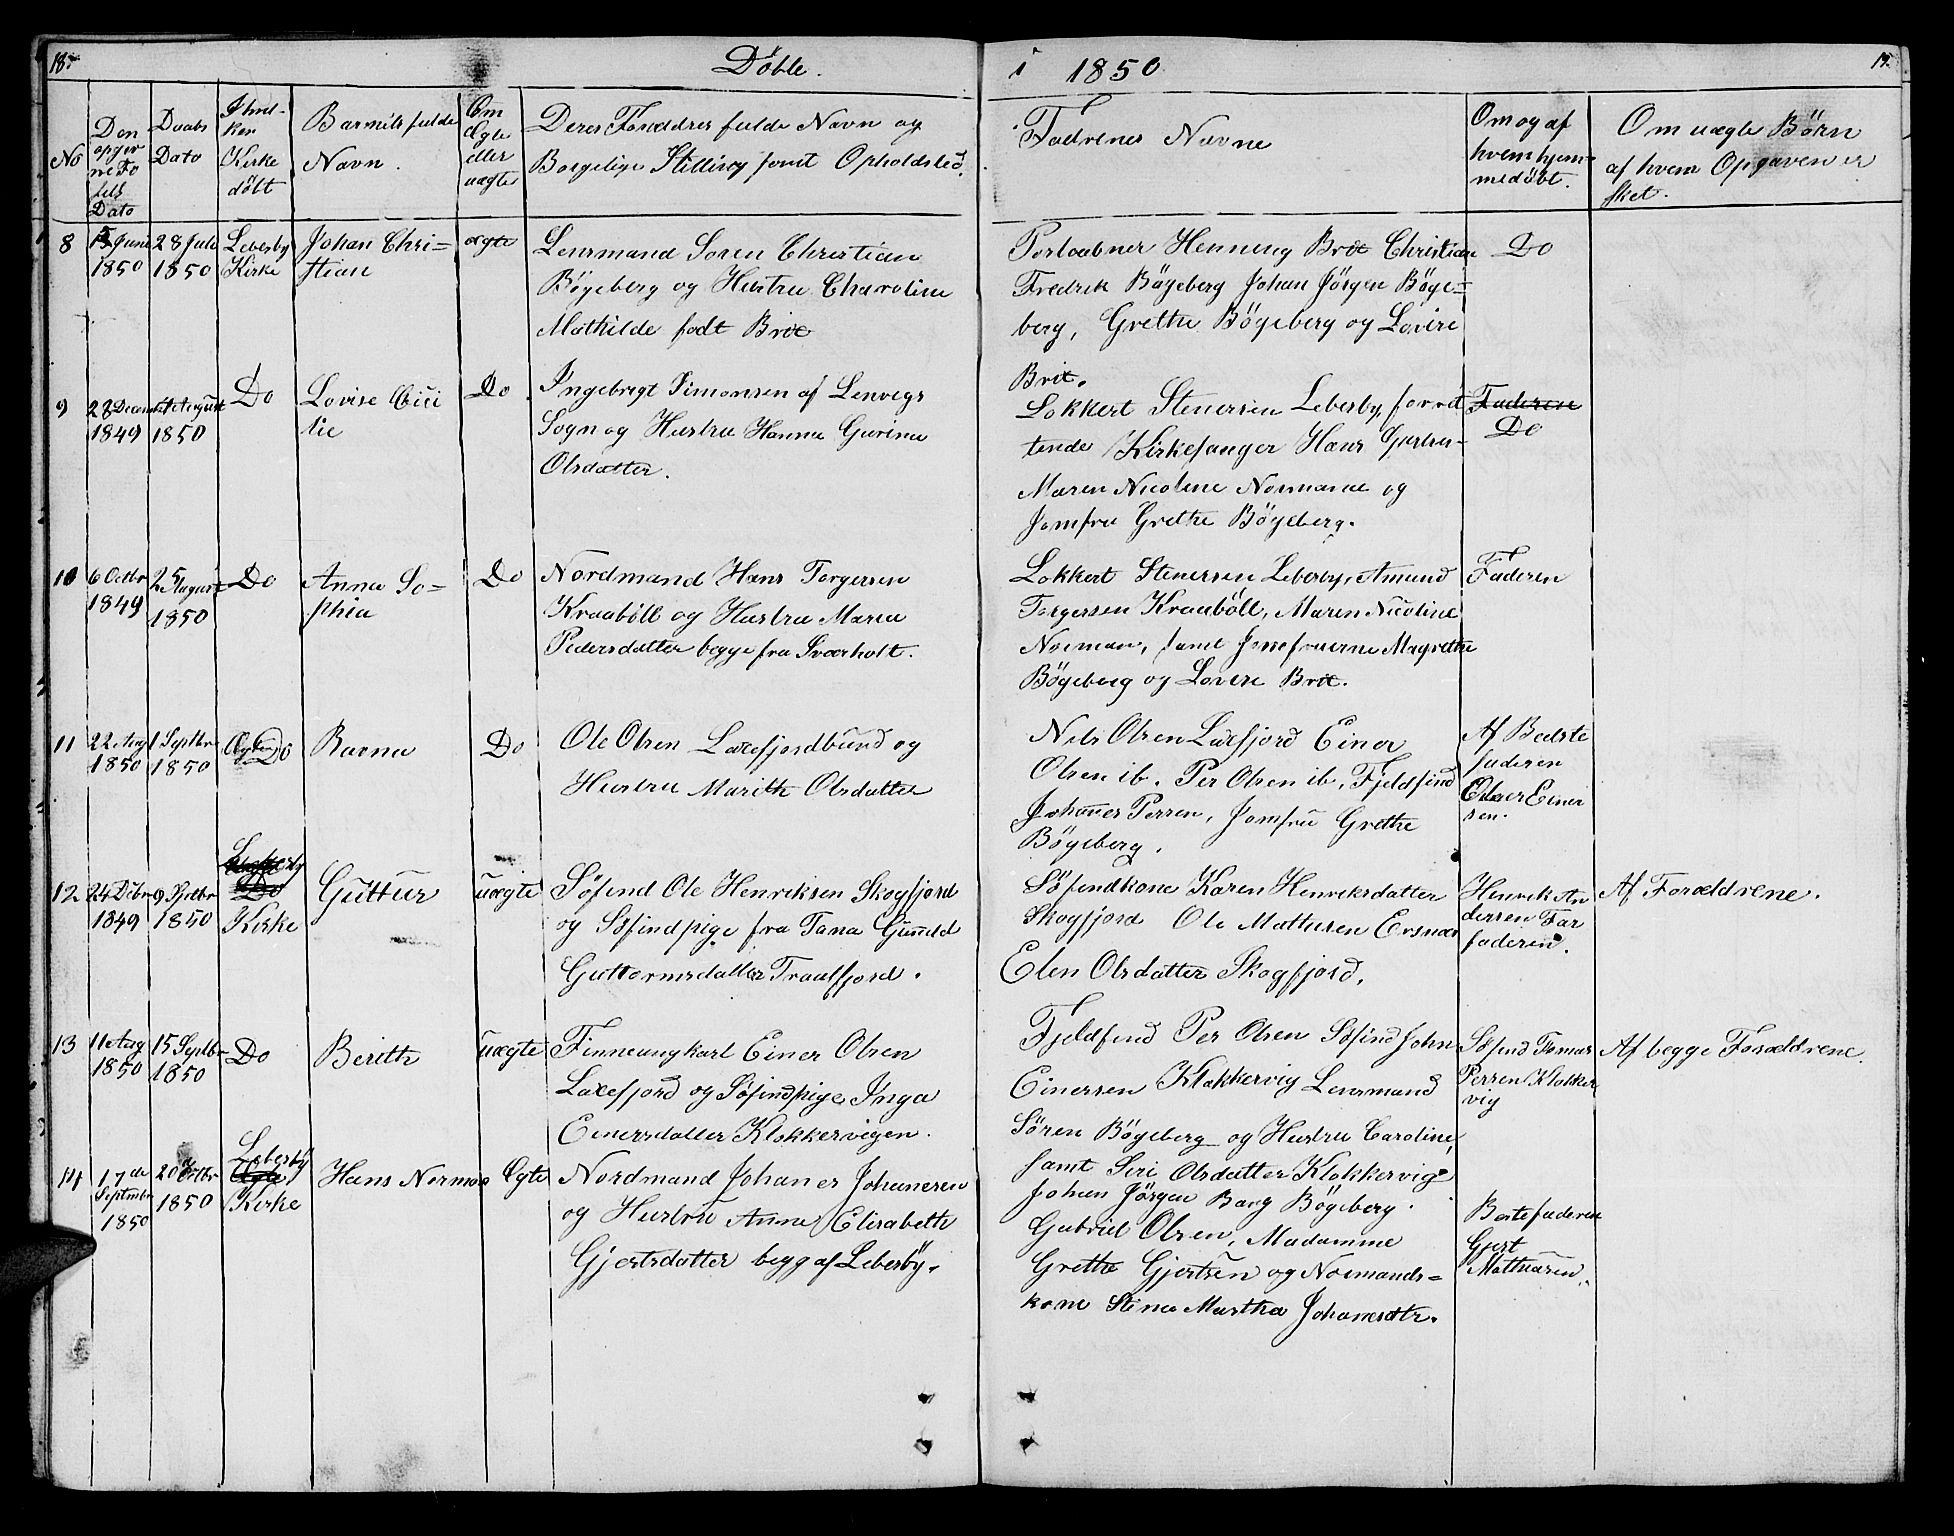 18.
Döbte.
i 1850
19.
No
Den opgivne Fodsels Dato
Daabs Dato
I hvilken Kirke döbt
Barnets fulde Navn.
Om Egte eller uægte
Deres Forældres fulde Navn og
Borgelige Stilling samt Opholdsted.
Fadrenes Navne
Om og af hvem hjemmedöbt.
Om uægte Börn
af hvem Opgaven er
sket.
8 15 Juni 1850
28 Juli 1850
Lebesby Kirke
Johan Chri=
stian
ægte
Lensmand Soren Christian
Bögeberg og Hustru Charoline
Mathilde fodt Brix
Portaabner Henning Brix Christian
Fredrik Bögeberg Johan Jörgen Böge=
berg, Grethe Bögeberg og Lovise
Brix.
Do
9 28 Decemb 1849
August 1850
Do
Lovise
Do
Ingebrigt Simonsen af Lenvigs
Sogn og Hustru Hanna Gurina
Olsdatter.
Lokkert Stenersen Lebesby, forret
tende Kirkesanger Hans
Maren Nicoline Normanne og
Jomfru Grethe Bögeberg.
Faderen
Do
10 6 Octbr 1849
25 August 1850
Do
Anna So=
phia
Do
Nordmand Hans Torgersen
Kraaböll og Hustru Maria
Pedersdatter begge fra Sværholt.
Lokkert Stenersen Lebesby, Amund
Torgersen Kraaböll, Maren Nicoline
Norman, samt Jomfruerne Magrethe
Bögeberg og Lovise Brix.
Faderen
11 22 Aug 1850
1 Septbr 1850
Do
Ravna
Do
Ole Olsen Laxefjordbund og
Hustru Marith Olsdatter
Nils Olsen Laxfjord Einer
Olsen ib. Per Olsen ib, Fjeldfind
Johanes Persen, Jomfru Grethe
Bögeberg.
Af Bedste
faderen
Einer
sen.
12 24 Debr 1849
9 Sptbr 1850
Lebesby
Do
Kirke
Guttur
uægte
Söfind Ole Henriksen Skogfjord
og Söfindpige fra Tana Guneld
Guttormsdatter Trautfjord.
Söfindkone Karen Henriksdatter
Skogfjord Ole Mathisen Ersnær
Elen Olsdatter Skogfjord.
Henrik An
dersen Far
faderen.
Af Forældrene.
13 11 Aug 1850
15 Septbr 1850
Do
Berith
uægte
Finneungkarl Einer Olsen
Laxefjord og Söfindpige Inga
Einersdatter Klokkervigen.
Fjeldfind Per Olsen Söfind John
Einersen Klokkervig Lensmand
Sören Bögeberg og Hustru Caroline,
samt Siri Olsdatter Klokkervig
Söfind Tomas
Persen Klokker
vig
Af begge Forældrene.
14 17de Septmbr 1850
20 Octbr 1850
Lebesby
Kirke
Hans Norman
Egte
Nordmand Johanes Johanesen
og Hustru Anne Elisabeth
Gjertsdatter begg af Lebesby.
Johan Jörgen Barg Bögeberg.
Gabriel Olsen, Madamme
Grethe Gjertsen og Normands=
kone Stina Martha Johanesdtr.
Bestefaderen
Gjert
Mathisen.